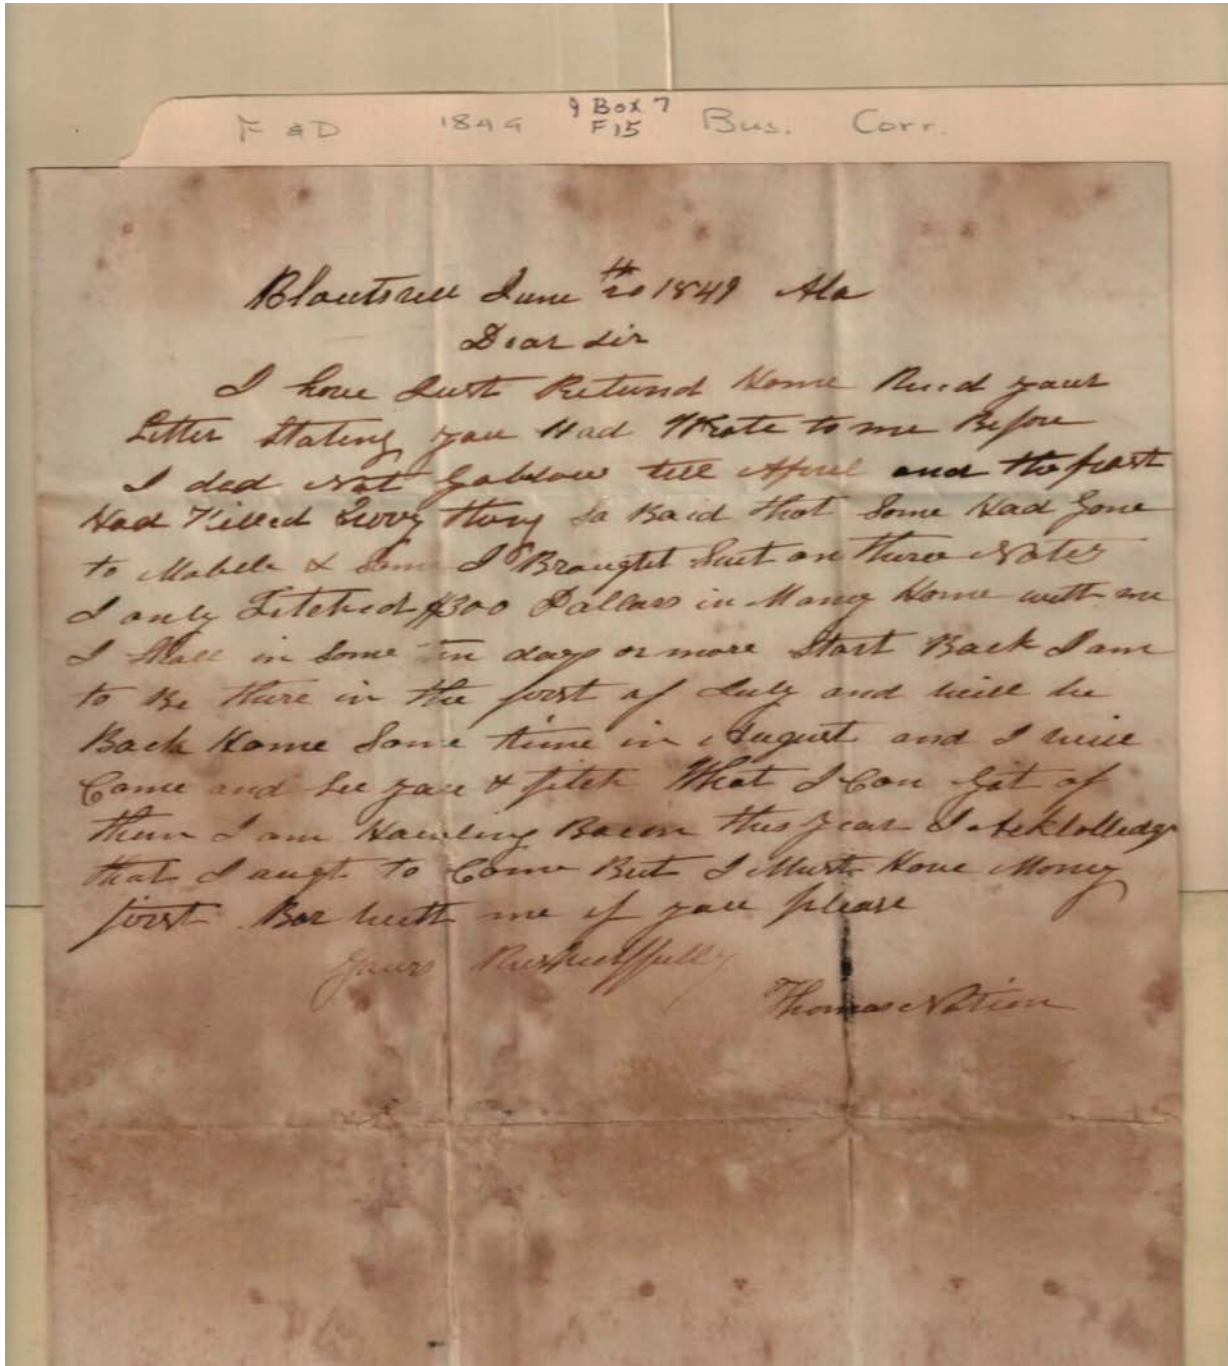 F & D 1849 9 Box 7 Bus. Corr.
F15
Blountsvill June 20th 1849 Ala
Dear Sir
I have Just Returnd Home Recd your
Letter Stating you Had Wrote to me Before
I did Not Go below till April and the frost
Had Killed Every thing So Baid that Some Had Gone
to Mobile & Some I Braught Suit on there Notes
I only Fetched $300 Dollars in Mony Home with me
I Shall in Some days or more Start Back I am
to Be there in the first of July and will be
Back Home Some time in August and I will
Come and See you & fetch What I Can Git of
them I am Hauling Bacon this year I Acklolledge
that I aught to Come But I Must Have Mony
first Bar with me if you please
yours Respectfully
Thomas Nation